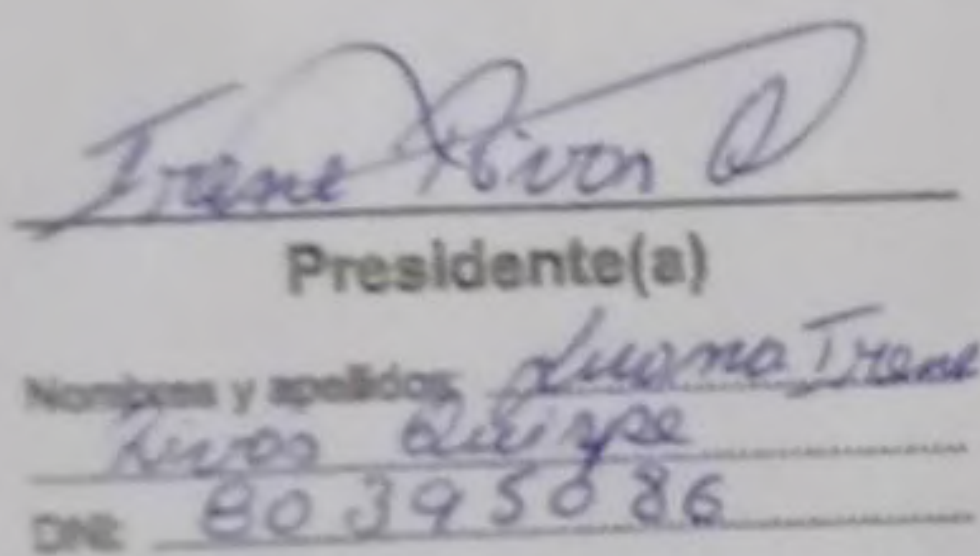 Irene Rivas Q
Presidente(a)
Nombres y apellidos: Juana Irene
Rivas Quispe
DNI: 80395086